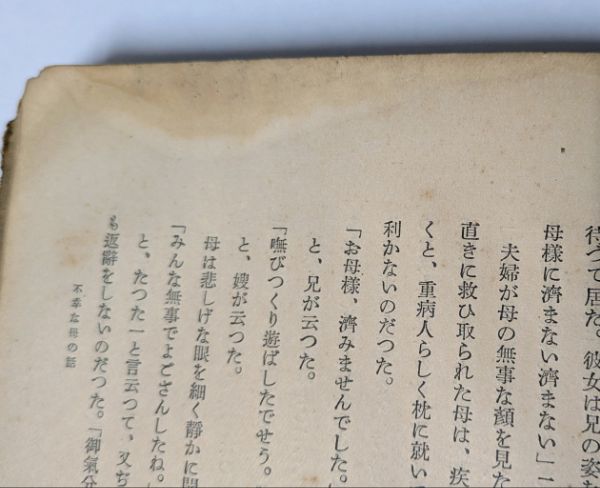 待つて居た。彼女は兄の姿を
母様に濟まない濟まない」
夫婦が母の無事な顔を見た
直きに救ひ取られた母は、疾
くと、重病人らしく枕に就い
利かないのだつた。
「お母様、濟みませんでした。
と、兄が云つた。
「嘸びつくり遊ばしたでせう。
と、嫂が云つた。
母は悲しげな眼を細く靜かに開
「みんな無事でよござんしたね。」
と、たつた一と言云つて、又ぢ
も返辭をしないのだつた。「御氣分
不幸な母の話